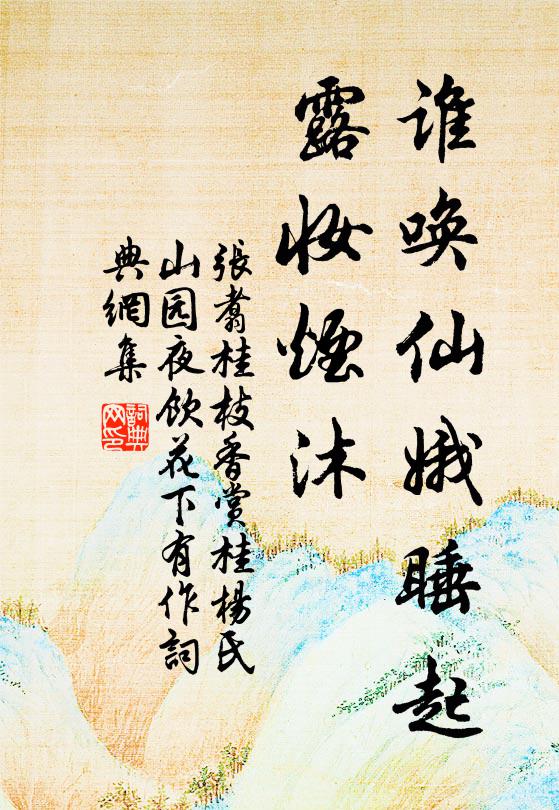 谁唤仙娥睡起
露妆煙沐
張翥桂枝香赏桂楊氏
山园夜飲花下有作詞
典網集
詞典
网印